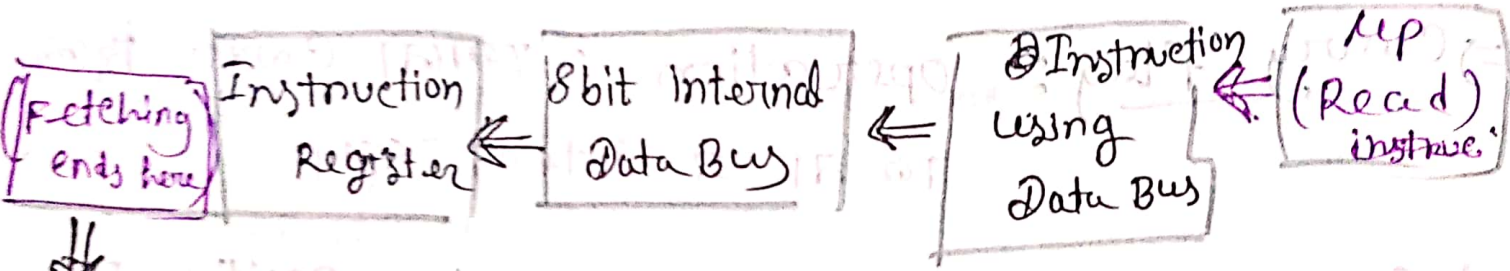 Fetching
ends here
Instruction
Register
8bit Internal
Data Bus
Instruction
using
Data Bus
μp
(Read)
instruc.